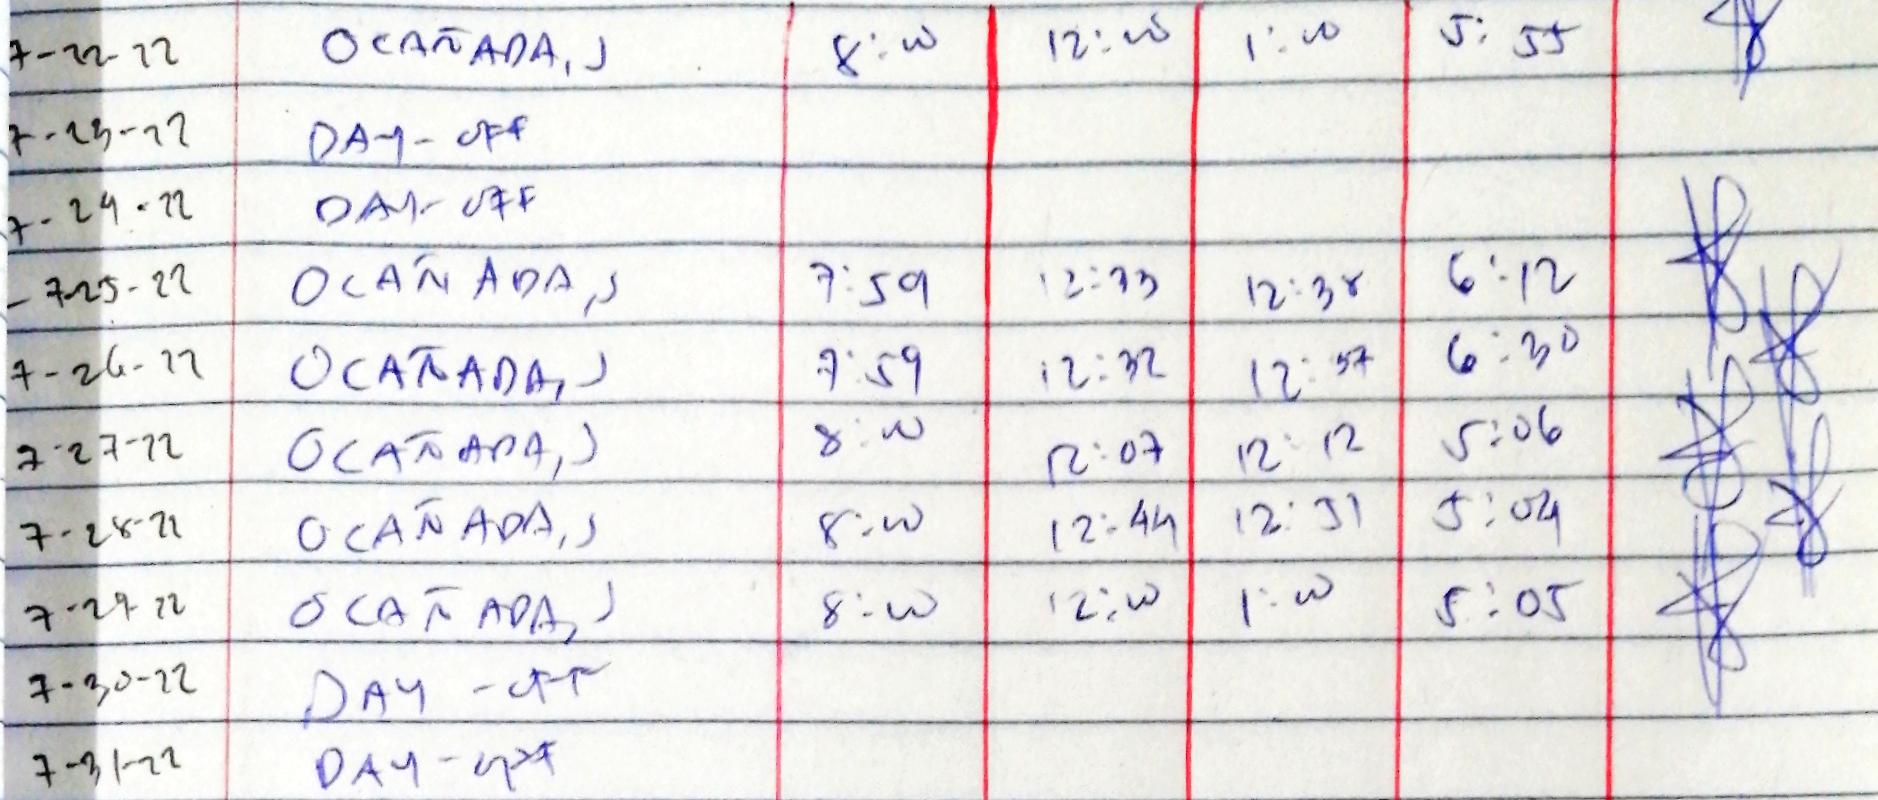 7-22-22 OCAÑADA, J 8:00 12:00 1:00 5:55
7-23-22 DAY-OFF
7-24-22 DAY-OFF
7-25-22 OCAÑADA, J 7:59 12:33 12:38 6:12
7-26-22 OCAÑADA, J 7:59 12:32 12:37 6:30
7-27-22 OCAÑADA, J 8:00 12:07 12:12 5:06
7-28-22 OCAÑADA, J 8:00 12:44 12:51 5:04
7-29-22 OCAÑADA, J 8:00 12:00 1:00 5:05
7-30-22 DAY-OFF
7-31-22 DAY-OFF